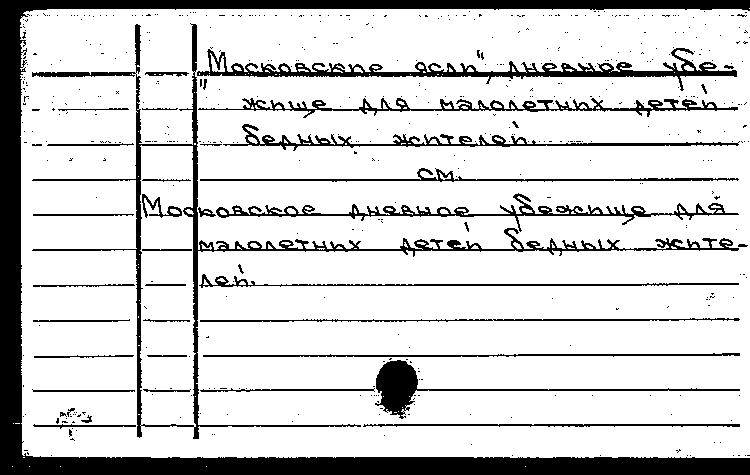 „Московские ясли", дневное убе-
жище для малолетних детей
бедных жителей.
см.
Московское дневное убежище для
малолетних детей бедных жите-
лей.